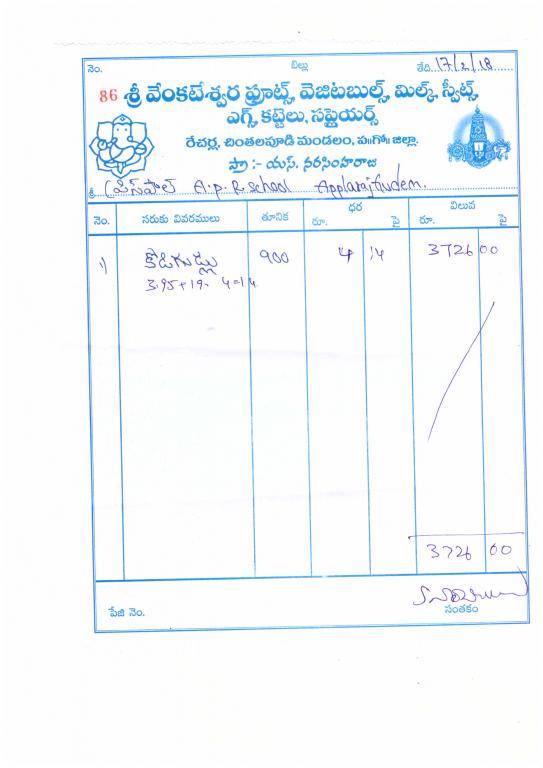 నెం. బిల్లు తేది. 17/2/18
86 శ్రీ వేంకటేశ్వర ఫ్రూట్స్, వెజిటబుల్స్, మిల్క్, స్వీట్స్,
ఎగ్స్, కట్టెలు, సప్లైయర్స్
రేచర్ల, చింతలపూడి మండలం, ప॥గో॥ జిల్లా.
ప్రొ :- యస్. నరసింహరాజు
శ్రీ ప్రిన్సిపాల్ A.p.R.school Applarajgudem.
నెం. సరుకు వివరములు తూనిక ధర విలువ
రూ. పై రూ. పై
1) కోడిగుడ్లు 900 4 14 3726 00
3.95+19= 4=14
3726 00
పేజి నెం. సంతకం